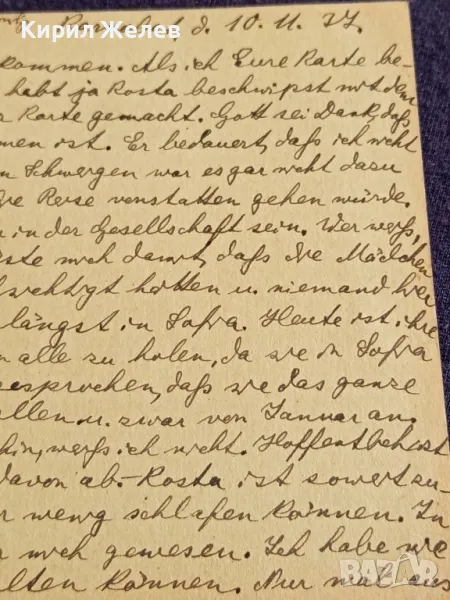 Кирил Желев
d. 10. 11. 37.
kommen. Als ich Eure Karte be-
habt ja Rosta beschwipst mit dem
Karte gemacht. Gott sei Dank, daß
men ist. Er bedauert, daß ich nicht
Schwergen war es gar nicht dazu
Reise vonstatten gehen würde.
in der Gesellschaft sein. Wer weiß,
mich damit, daß die Mädchen
hatten u. niemand hier
längst in Sofia. Heute ist ihre
alle zu holen, da sie in Sofia
esprochen, daß sie das ganze
ellen u. zwar von Januar an.
hin, weiß ich nicht. Hoffentlich ist
davon ab. - Rosta ist soweit zu-
wenig schlafen können. In
mich gewesen. Ich habe wie
lten können. Nur mal aus
BAZAR